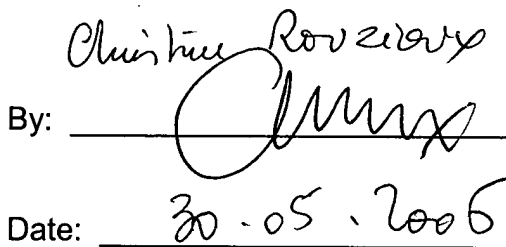 Christine Rouzioux
By:
Date: 30.05.2006